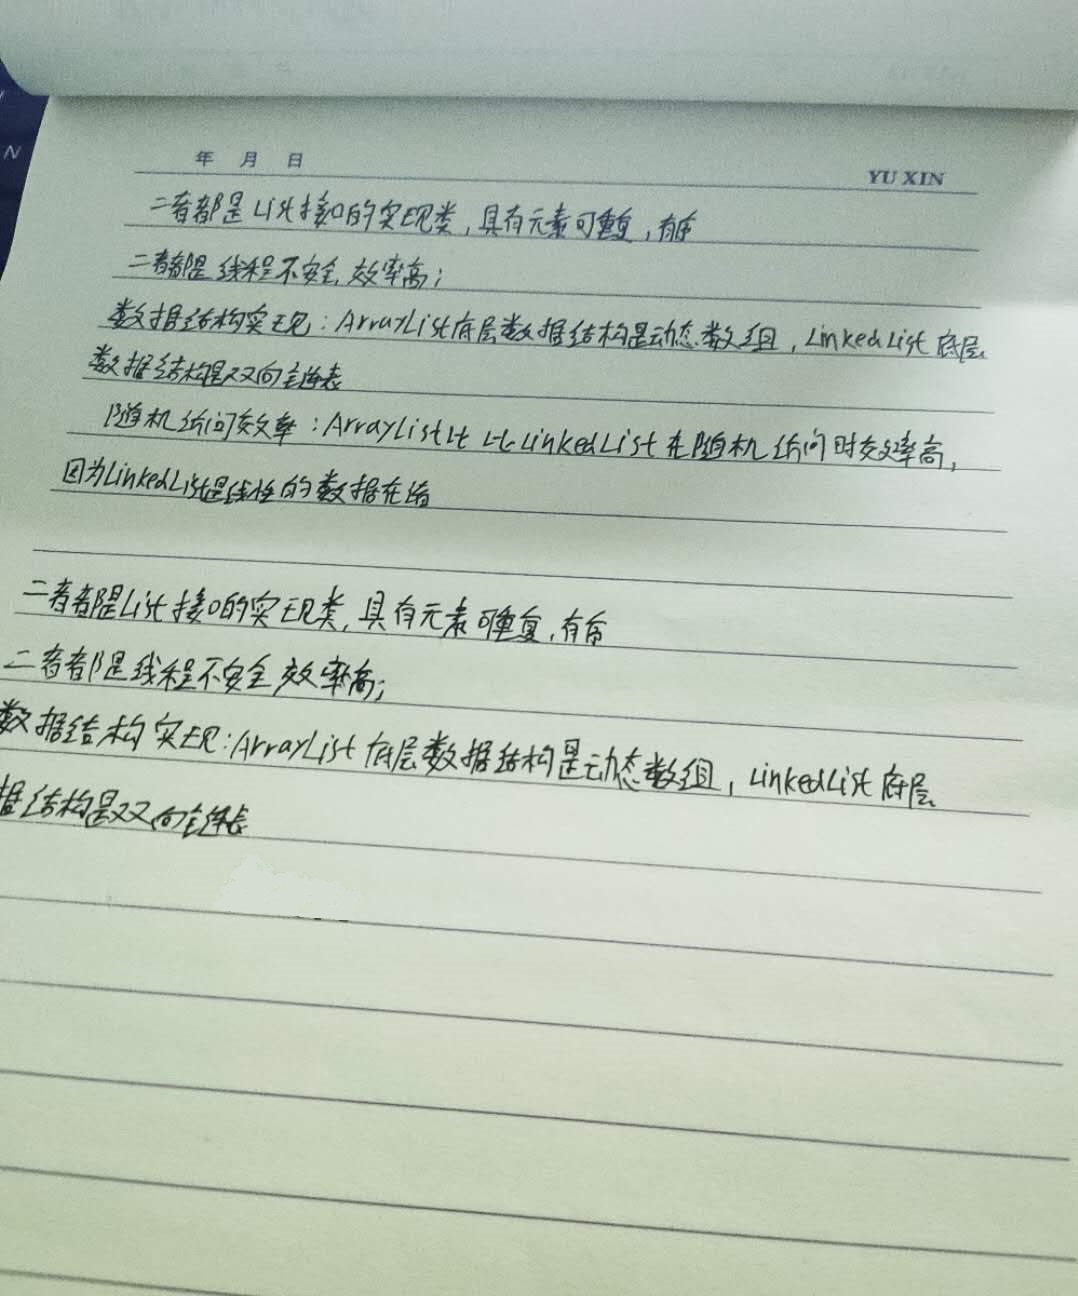 年 月 日
YU XIN
二者都是List接口的实现类，具有元素可重复，有序
二者都是线程不安全，效率高；
数据结构实现：ArrayList底层数据结构是动态数组，LinkedList底层
数据结构是双向链表
随机访问效率：ArrayList比比LinkedList在随机访问时效率高，
因为LinkedList是线性的数据存储
二者都是List接口的实现类，具有元素可重复，有序
二者都是线程不安全，效率高；
数据结构实现：ArrayList底层数据结构是动态数组，LinkedList底层
据结构是双向链表
N